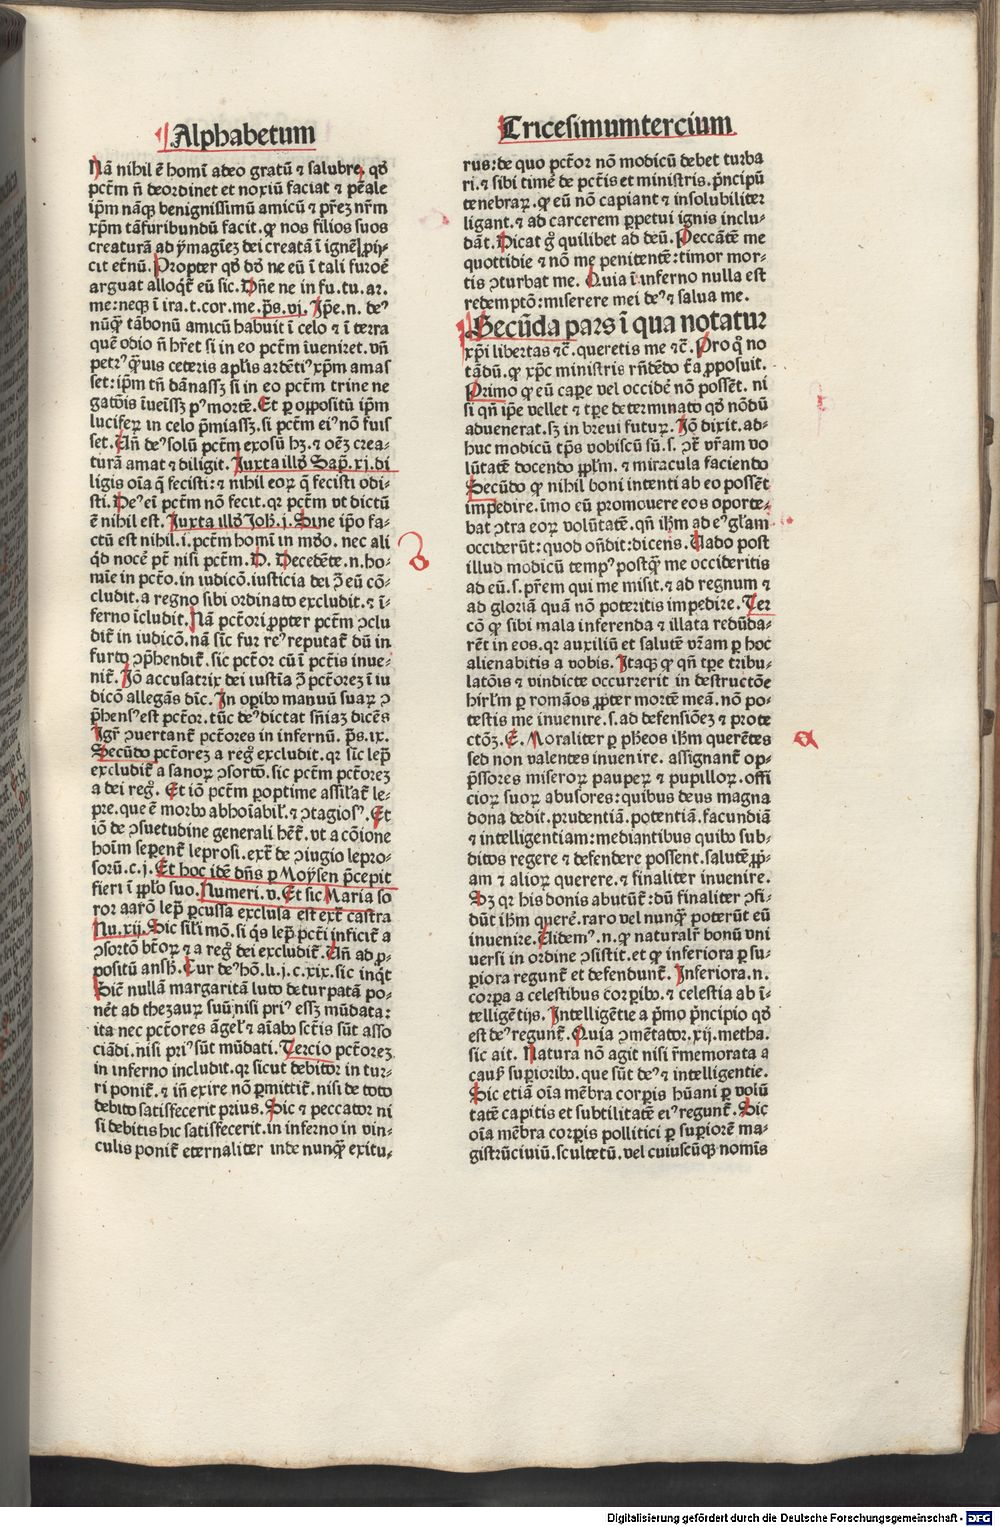 Alphabetum
Nā nihil ē homī adeo gratū ⁊ salubre, qđ
pctm̄ n̄ deordinet et noxiū faciat ⁊ pēale
ip̄m nāqȝ benignissimū amicū ⁊ pr̄eȝ nr̄m
xp̄m tāfuribundū facit. ꝙ nos filios suos
creaturā ad ymagīeȝ dei creatā ī ignē ꝓij-
cit et̄nū. Propter qđ dō ne eū ī tali furoē
arguat alloqt̄ eū sic. Dn̄e ne in fu. tu. ar.
me: neqȝ ī ira. t. cor. me. p̄s. vj. Ip̄e. n. de⁹
nūq̄ tā bonū amicū habuit ī celo ⁊ ī terra
quē odio n̄ hr̄et si in eo pctm̄ īueniret. vn̄
petr⁹ q̄uis ceteris aplis ardēti⁹ xp̄m amas
set: ip̄m tn̄ dānassȝ si in eo pctm̄ trine ne
gatōis īueīssȝ p⁹ mortē. Et ꝑ oppositū ip̄m
luciferꝝ in celo p̄miassȝ. si pctm̄ ei⁹ nō fuis
set. An̄ de⁹ solū pctm̄ exosū hȝ. ⁊ oēȝ crea-
turā amat ⁊ diligit. Juxta illđ Sap̄. xj. di
ligis oīa q̄ fecisti: ⁊ nihil eoꝝ q̄ fecisti odi-
sti. De⁹ eī pctm̄ nō fecit. qꝛ pctm̄ vt dictū
ē nihil est. Juxta illđ Joh̄. j. Sine ip̄o fa-
ctū est nihil. i. pctm̄ homī in mđo. nec ali
qđ nocē pt̄ nisi pctm̄. D. Decedēte. n. ho-
mīe in pctō. in iudicō. iusticia dei ꝯ̄ eū cō-
cludit. a regno sibi ordinato excludit. ⁊ ī-
ferno īcludit. Nā pctōri ꝓpter pctm̄ ꝯclu
dit̄ in iudicō. nā sic fur re⁹ reputat̄ dū in
furto ꝯp̄hendit̄. sic pctōr cū ī pctīs inue-
nit̄. Jō accusatrix dei iustīa ꝯ̄ pctōreȝ ī iu
dicō allegās dīc. In opībo manuū suaꝝ ꝯ
p̄hens⁹ est pctōr. tūc de⁹ dictat sn̄iaȝ dicēs
Igr̄ ꝯuertant̄ pctōres in infernū. p̄s. ix.
Secūdo pctōreȝ a regō excludit. qꝛ sic lep̄
excludit̄ a sanoꝝ ꝯsortō. sic pctm̄ pctōreȝ
a dei regō. Et iō pctm̄ ꝓoptime assilat̄ le-
pre. que ē morbo abhoīabil̄. ⁊ ꝯtagios⁹. Et
iō de ꝯsuetudine generali hēt̄. vt a cōione
hoīm sepent̄ leprosi. ext̄ de ꝯiugio lepro-
sorū. c. j. Et hoc idē dn̄s ꝑ Moysen p̄cepit
fieri ī ꝓplo suo. Numeri. v. Et sic Maria so
ror aarō lep̄ ꝑcussa exclusa est ext̄ castra
Nu. xij. Sic sil̄i mō. si q̄s lep̄ pctī inficit̄ a
ꝯsortō btōꝝ ⁊ a regō dei excludit̄. An̄ ad ꝓ-
positū ansh̄. Cur de⁹ hō. li. j. c. xix. sic inqt
Sic̄ nullā margaritā luto deturpatā po-
nēt ad thezauꝝ suū: nisi pri⁹ essȝ mūdata:
ita nec pctōres āgel̄ ⁊ aīabo sctīs sūt asso
ciādi. nisi pri⁹ sūt mūdati. Tercio pctōreȝ
in inferno includit. qꝛ sicut debitor in tur-
ri ponit̄. ⁊ in̄ exire nō ꝑmittit̄. nisi de toto
debito satisfecerit prius. Sic ⁊ peccator ni
si debitis hic satisfecerit. in inferno in vin-
culis ponit̄ eternaliter inde nunq̄ exitu-
Tricesimumtercium
rus: de quo pctōr nō modicū debet turba
ri. ⁊ sibi timē de pctīs et ministris. p̄ncipū
tenebraꝝ. ꝙ eū nō capiant ⁊ insolubiliter
ligant. ⁊ ad carcerem ꝑpetui ignis inclu-
dāt. Dicat gͦ quilibet ad deū. Peccātē me
quottidie ⁊ nō me penitentē: timor mor-
tis ꝯturbat me. Quia ī inferno nulla est
redemptō: miserere mei de⁹ ⁊ salua me.
Secūda pars ī qua notatur
xp̄i libertas ⁊c̄. queretis me ⁊c̄. Pro qͦ no
tādū. ꝙ xp̄c ministris rn̄dēdo t̄a ꝓposuit.
Primo ꝙ eū caꝑe vel occidē nō possēt. ni
si qn̄ ip̄e vellet ⁊ tꝑe determinato qđ nōdū
aduenerat. sȝ in breui futuꝝ. Jō dixit. ad-
huc modicū tp̄s vobiscū sū. s. ꝯt̄ vr̄am vo
lūtatē docendo ꝓplm̄. ⁊ miracula faciendo
Secūdo ꝙ nihil boni intenti ab eo possēt
impedire. īmo eū promouere eos oporte-
bat ꝯtra eoꝝ volūtatē. qn̄ ih̄m ad e⁹ gl̄am
occiderūt: quod on̄dit: dicens. Uado post
illud modicū temp⁹ postq̄ me occideritis
ad eū. s. pr̄em qui me misit. ⁊ ad regnum ⁊
ad gloriā quā nō poteritis impedire. Ter
cō ꝙ sibi mala inferenda ⁊ illata redūda-
rēt in eos. qꝛ auxiliū et salutē vr̄am ꝑ hoc
alienabitis a vobis. Itaqȝ ꝙ qn̄ tꝑe tribu-
latōis ⁊ vindicte occurrerit in destructōe
hirl̄m ꝑ romāos ꝓpter mortē meā. nō po-
testis me inuenire. s. ad defensiōeȝ ⁊ prote
ctōȝ. E. Moraliter ꝑ ph̄eos ih̄m querētes
sed non valentes inuenire. assignant̄ op-
p̄ssores miseroꝝ pauperꝝ ⁊ pupilloꝝ. offi
cioꝝ suoꝝ abusores: quibus deus magna
dona dedit. prudentiā. potentiā. facundiā
⁊ intelligentiam: mediantibus quibo sub-
ditos regere ⁊ defendere possent. salutē ꝓp̄-
am ⁊ alioꝝ querere. ⁊ finaliter inuenire.
Sȝ qꝛ his donis abutūt̄: dū finaliter ꝯfi-
dūt ih̄m querē. raro vel nunq̄ poterūt eū
inuenire. Uidem⁹. n. ꝙ naturalr̄ bonū vni
uersi in ordine ꝯsistit. et ꝙ inferiora ꝑ su-
ꝑiora regunt̄ et defendunt̄. Inferiora. n.
corꝑa a celestibus corꝑibo. ⁊ celestia ab ī-
telligētijs. Intelligētie a p̄mo p̄ncipio qđ
est de⁹ regunt̄. Quia ꝯmētator. xij. metha.
sic ait. Natura nō agit nisi r̄memorata a
cauẜ suꝑioribo. que sūt de⁹ ⁊ intelligentie.
Sic etiā oīa mēbra corꝑis hūani ꝑ volū
tatē capitis et subtilitatē ei⁹ regunt̄. Sic
oīa mēbra corꝑis pollitici ꝑ suꝑiorē ma-
gistrū ciuiū. scultetū. vel cuiuscūqȝ nomīs
Digitalisierung gefördert durch die Deutsche Forschungsgemeinschaft - DFG